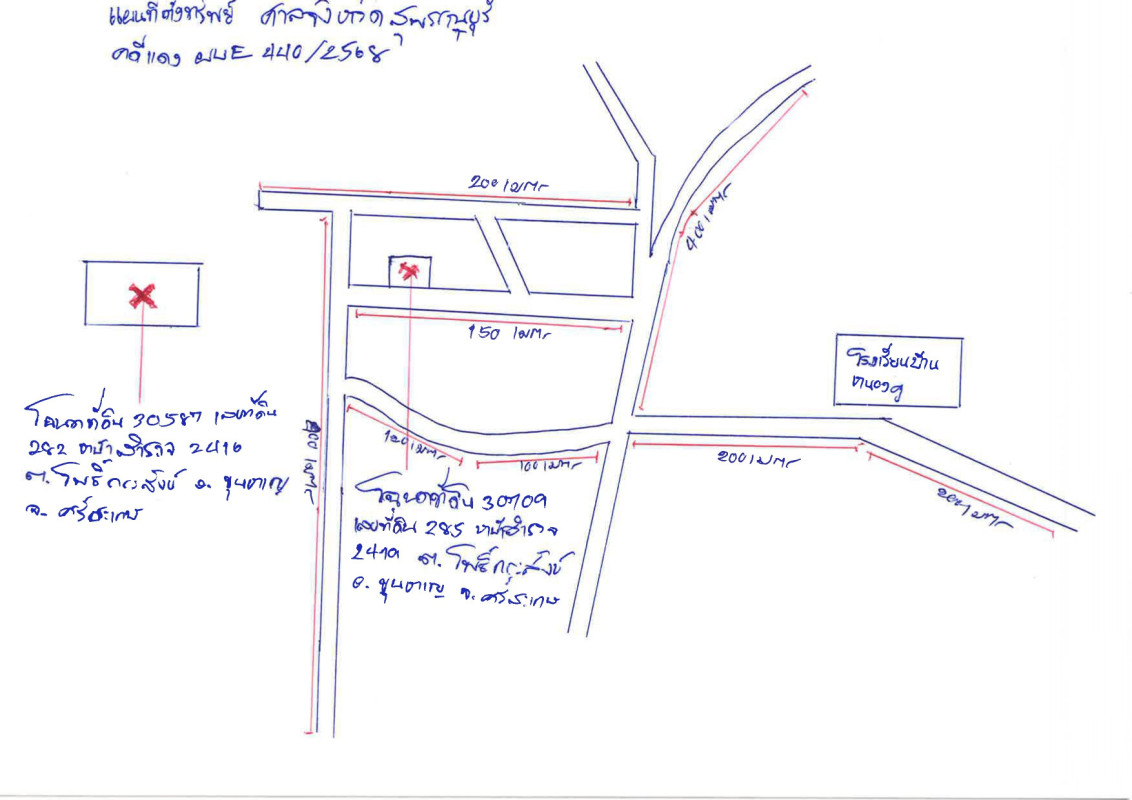 แผนที่ตั้งทรัพย์ ศาลจังหวัดสุพรรณบุรี
คดีแดง ผบE 440/2568
200 เมตร
400 เมตร
150 เมตร
โรงเรียนบ้าน
หนองคู
โฉนดที่ดิน 30587 เลขที่ดิน
282 หน้าสำรวจ 2416
ต.โพธิ์กระสังข์ อ. ขุนหาญ
จ. ศรีสะเกษ
เมตร
120 เมตร
100 เมตร
200 เมตร
200 เมตร
โฉนดที่ดิน 30709
เลขที่ดิน 285 หน้าสำรวจ
ต. โพธิ์กระสังข์
อ. ขุนหาญ จ. ศรีสะเกษ